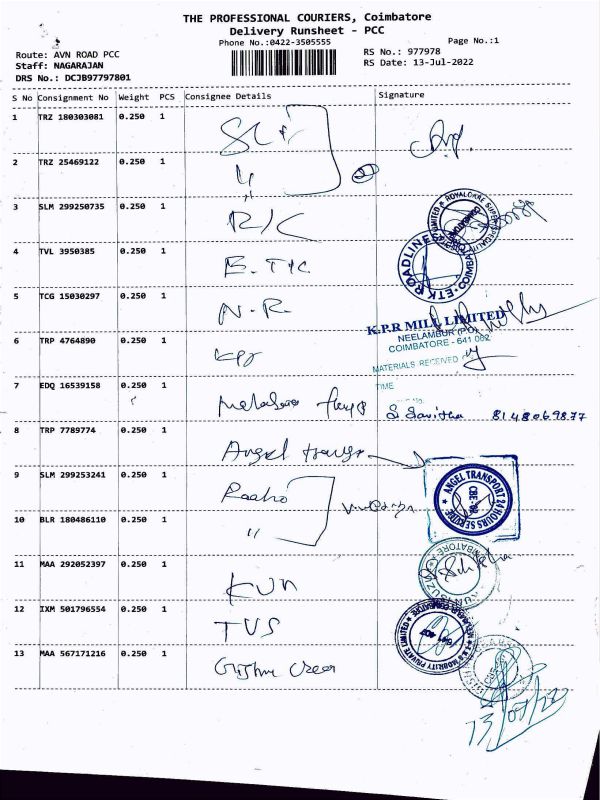 THE PROFESSIONAL COURIERS, Coimbatore
Delivery Runsheet - PCC
Phone No.:0422-3505555
Page No.:1
Route: AVN ROAD PCC
RS No.: 977978
Staff: NAGARAJAN
RS Date: 13-Jul-2022
DRS No.: DCJB97797801
S No Consignment No Weight PCS Consignee Details Signature
1 TRZ 180303081 0.250 1
2 TRZ 25469122 0.250 1 "
3 SLM 299250735 0.250 1 R/C
4 TVL 3950385 0.250 1
ETK ROADLINES COIMBA
5 TCG 15030297 0.250 1 N.R.
K.P.R MILL LIMITED
NEELAMBUR (PO)
COIMBATORE - 641 062
6 TRP 4764890 0.250 1 KPR
MATERIALS RECEIVED
TIME
7 EDQ 16539158 0.250 1 S Savitha 8148069877
8 TRP 7789774 0.250 1 Angel
9 SLM 299253241 0.250 1
ANGEL TRANSPORT 24 HOURS SERVICE
10 BLR 180486110 0.250 1 "
11 MAA 292052397 0.250 1 KUN
12 IXM 501796554 0.250 1 TVS
MOBILITY PRIVATE LIMITED
13 MAA 567171216 0.250 1